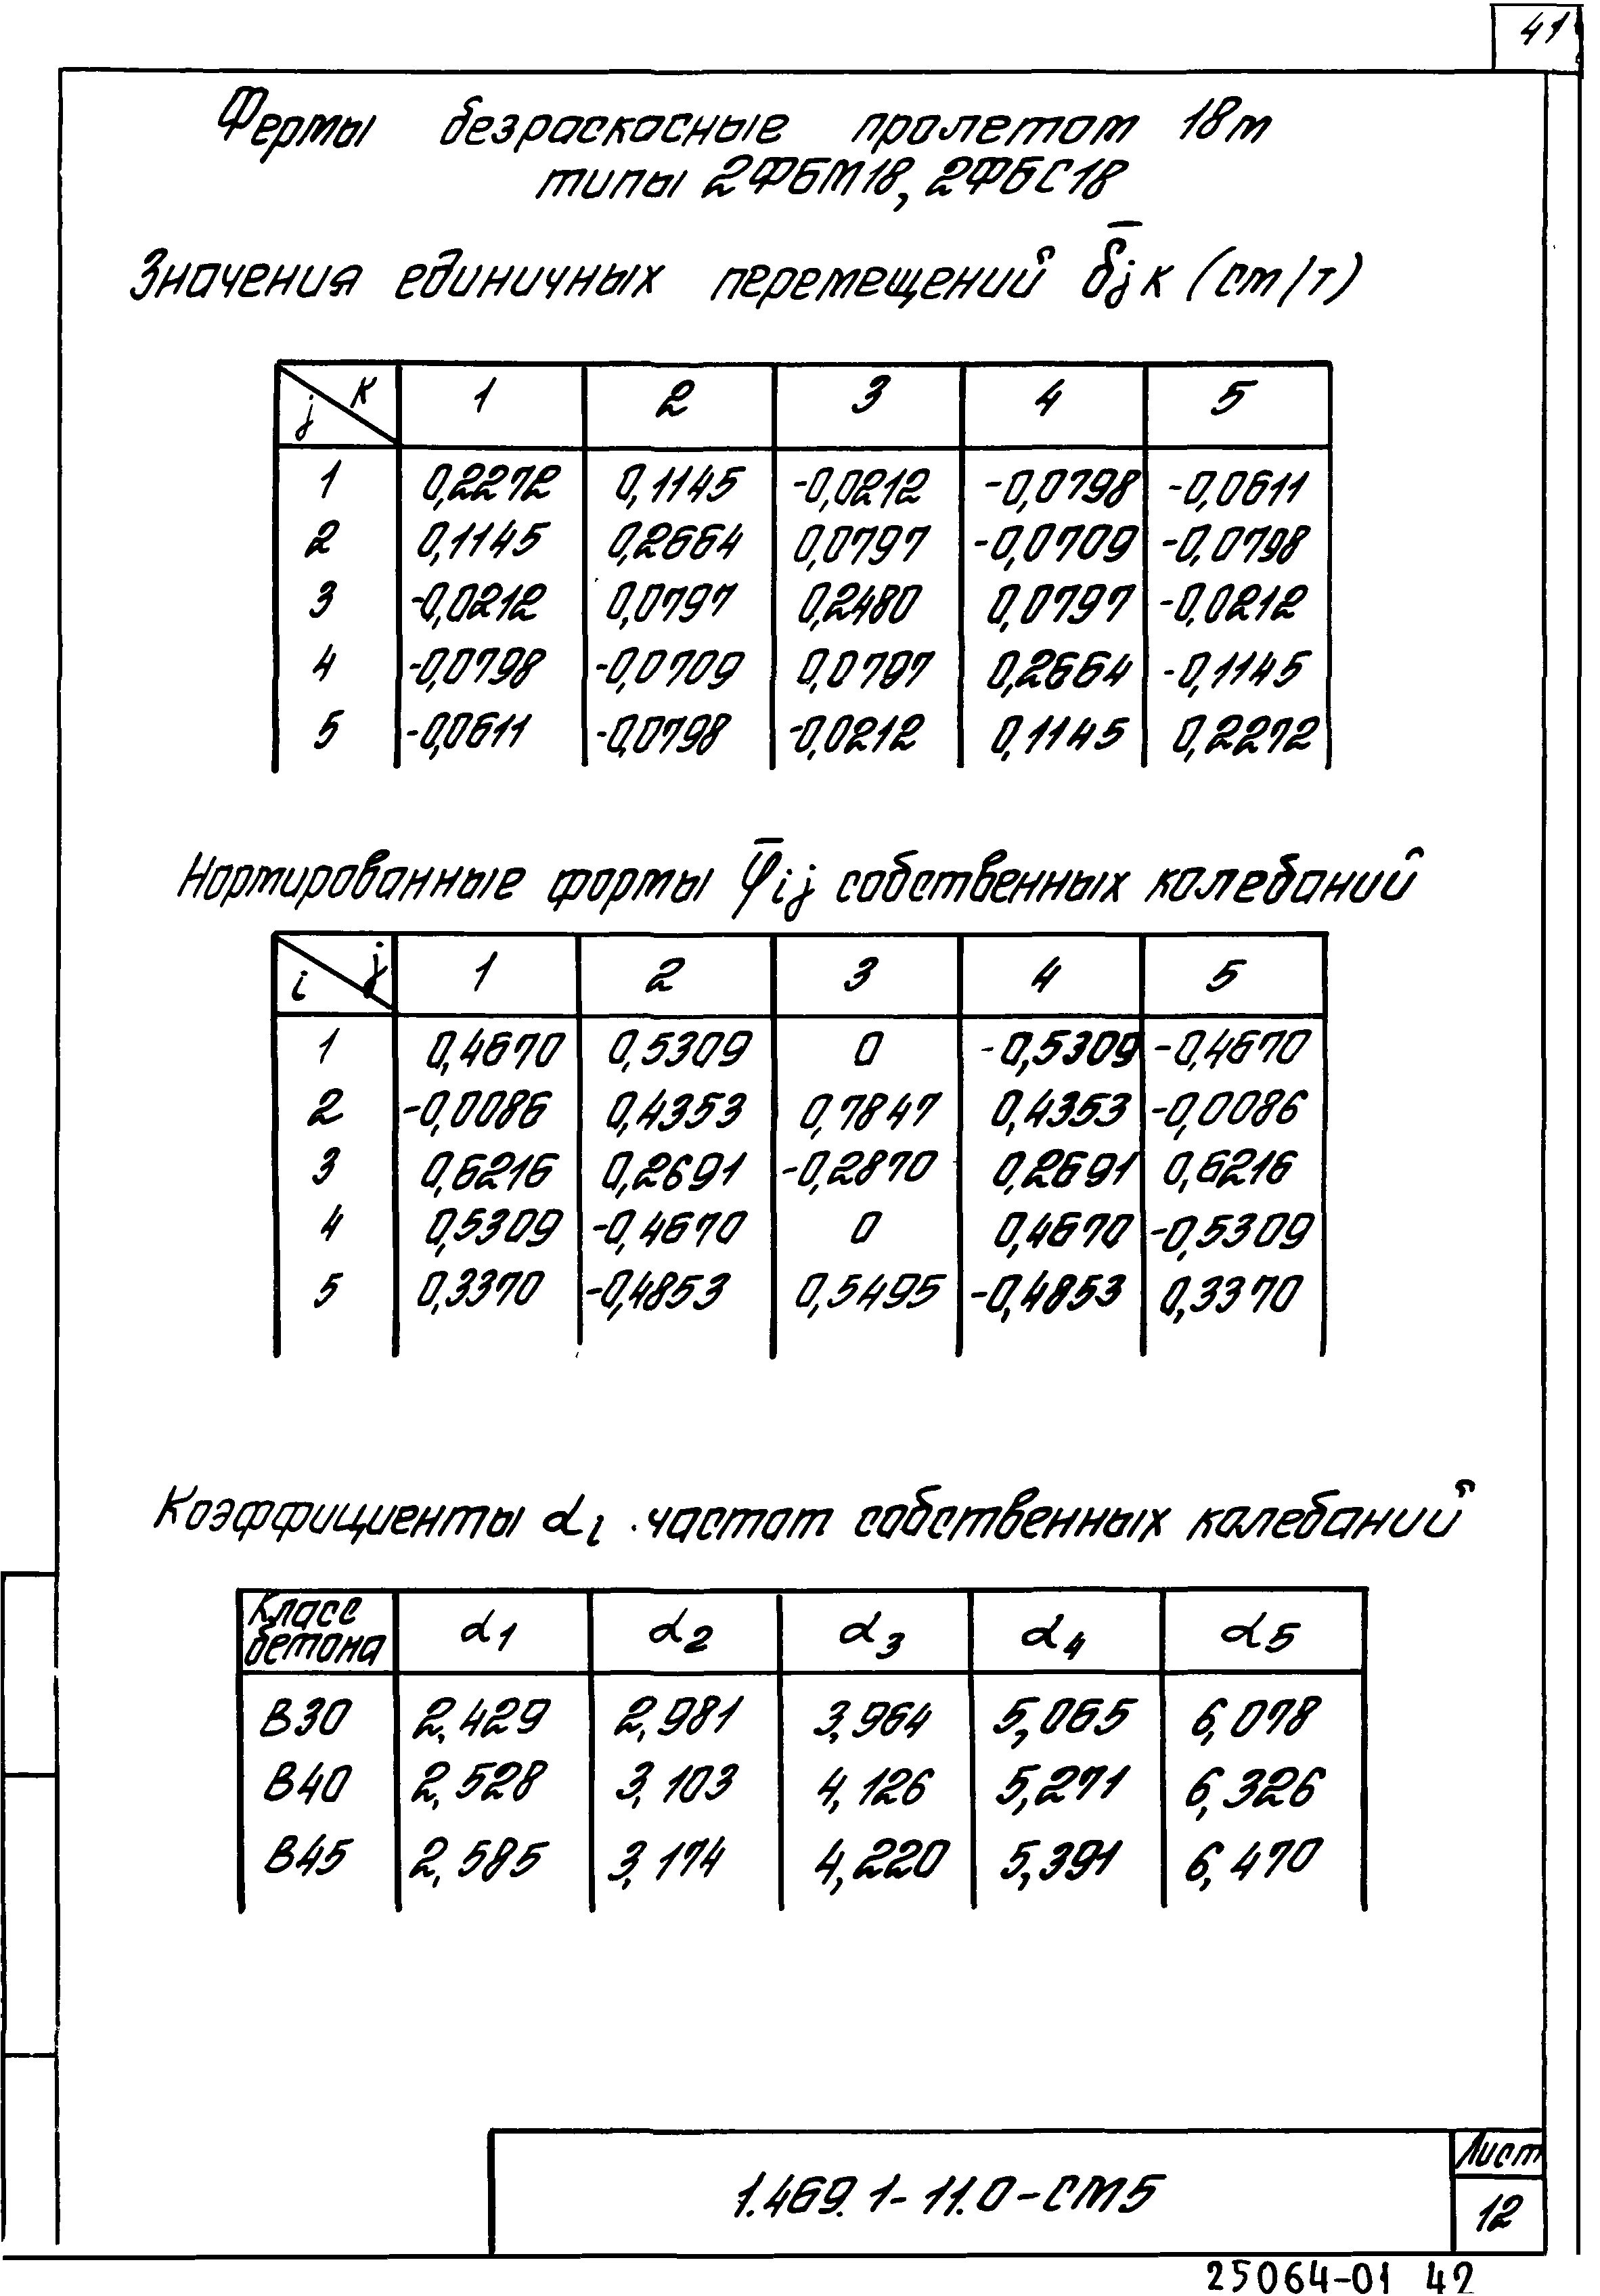 41
Фермы безраскосные пролетом 18м
типы 2ФБМ18, 2ФБС18
Значения единичных перемещений δ̄jк (см/т)
j к 1 2 3 4 5
1 0,2272 0,1145 -0,0212 -0,0798 -0,0611
2 0,1145 0,2664 0,0797 -0,0709 -0,0798
3 -0,0212 0,0797 0,2480 0,0797 -0,0212
4 -0,0798 -0,0709 0,0797 0,2664 -0,1145
5 -0,0611 -0,0798 -0,0212 0,1145 0,2272
Нормированные формы φ̄ij собственных колебаний
i j 1 2 3 4 5
1 0,4670 0,5309 0 -0,5309 -0,4670
2 -0,0086 0,4353 0,7847 0,4353 -0,0086
3 0,6216 0,2691 -0,2870 0,2691 0,6216
4 0,5309 -0,4670 0 0,4670 -0,5309
5 0,3370 -0,4853 0,5495 -0,4853 0,3370
Коэффициенты αi частот собственных колебаний
Класс бетона α1 α2 α3 α4 α5
В30 2,429 2,981 3,964 5,065 6,078
В40 2,528 3,103 4,126 5,271 6,326
В45 2,585 3,174 4,220 5,391 6,470
1.469.1-11.0-СМ5
Лист
12
25064-01 42